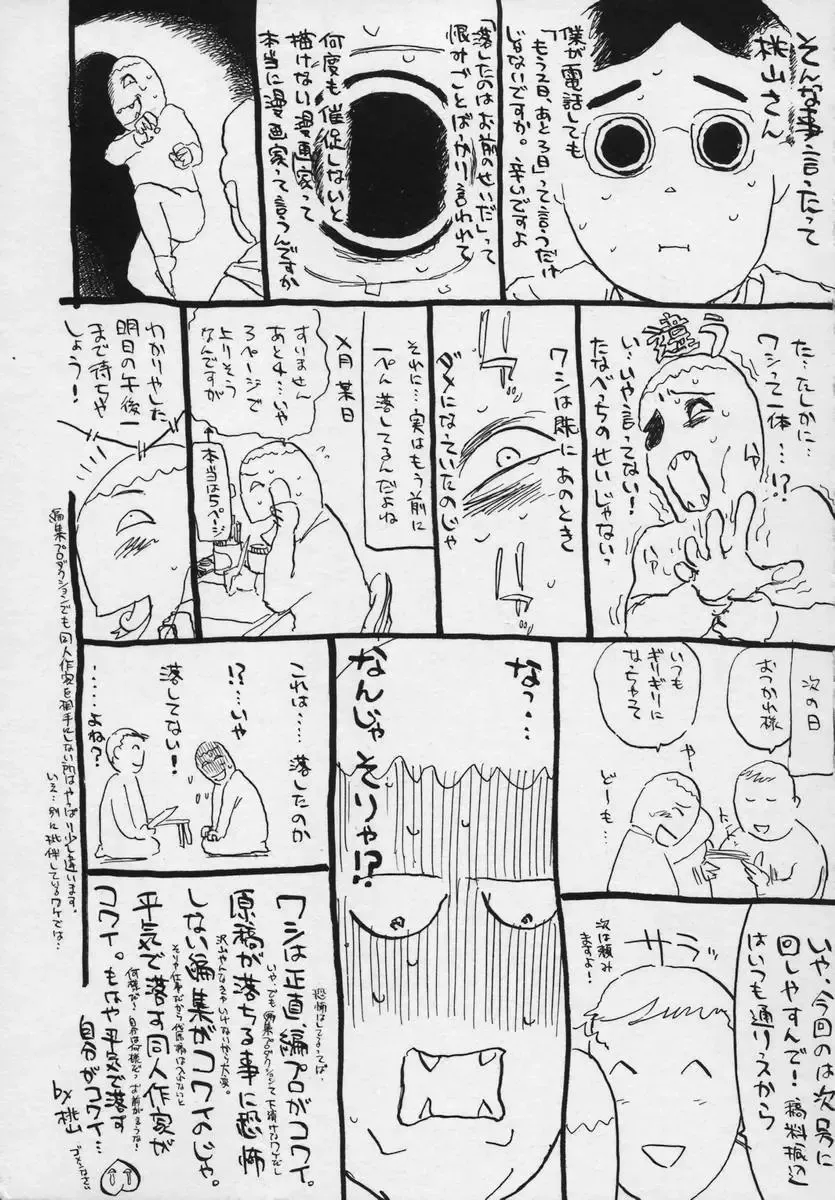 そんな事言ったって
桃山さん
僕が電話しても
「もう2日、あと3日」って言うだけ
じゃないですか。辛いですよ
「落したのはお前のせいだ」って
恨みごとばっかり言われて
何度も催促しないと
描けない漫画家って
本当に漫画家って言うんですか
た…たしかに…
ワシって一体…!?
違う
い…いや言ってない!
たなべっちのせいじゃないっ
ワシは既にあのとき
ダメになっていたのじゃ
それに…実はもう前に
一ぺん落してるんだよね
×月某日
すいません
あと4…いや
3ページで
上りそう
なんですが
↑本当は5ページ
わかりやした
明日の午後一
まで待ちや
しょう!
次の日
おつかれ様
いつも
ギリギリに
なっちゃって
やー
どーも…
いや、今回のは次号に
回しやすんで!稿料振込
はいつも通りっスから
サラッ
次は頼み
ますよ!
なっ…
なんじゃそりゃ!?
これは……落したのか
!?……いや
落してない!
……よね?
ワシは正直、編プロがコワイ。
原稿が落ちる事に恐怖
しない編集がコワイのじゃ。
平気で落す同人作家が
コワイ。もはや平気で落す
自分がコワイ…
by 桃山
ゴメンなさい
編集プロダクションでも同人作家を相手にしない所はやっぱり少し違います。
いえ…別に批判しているワケでは…